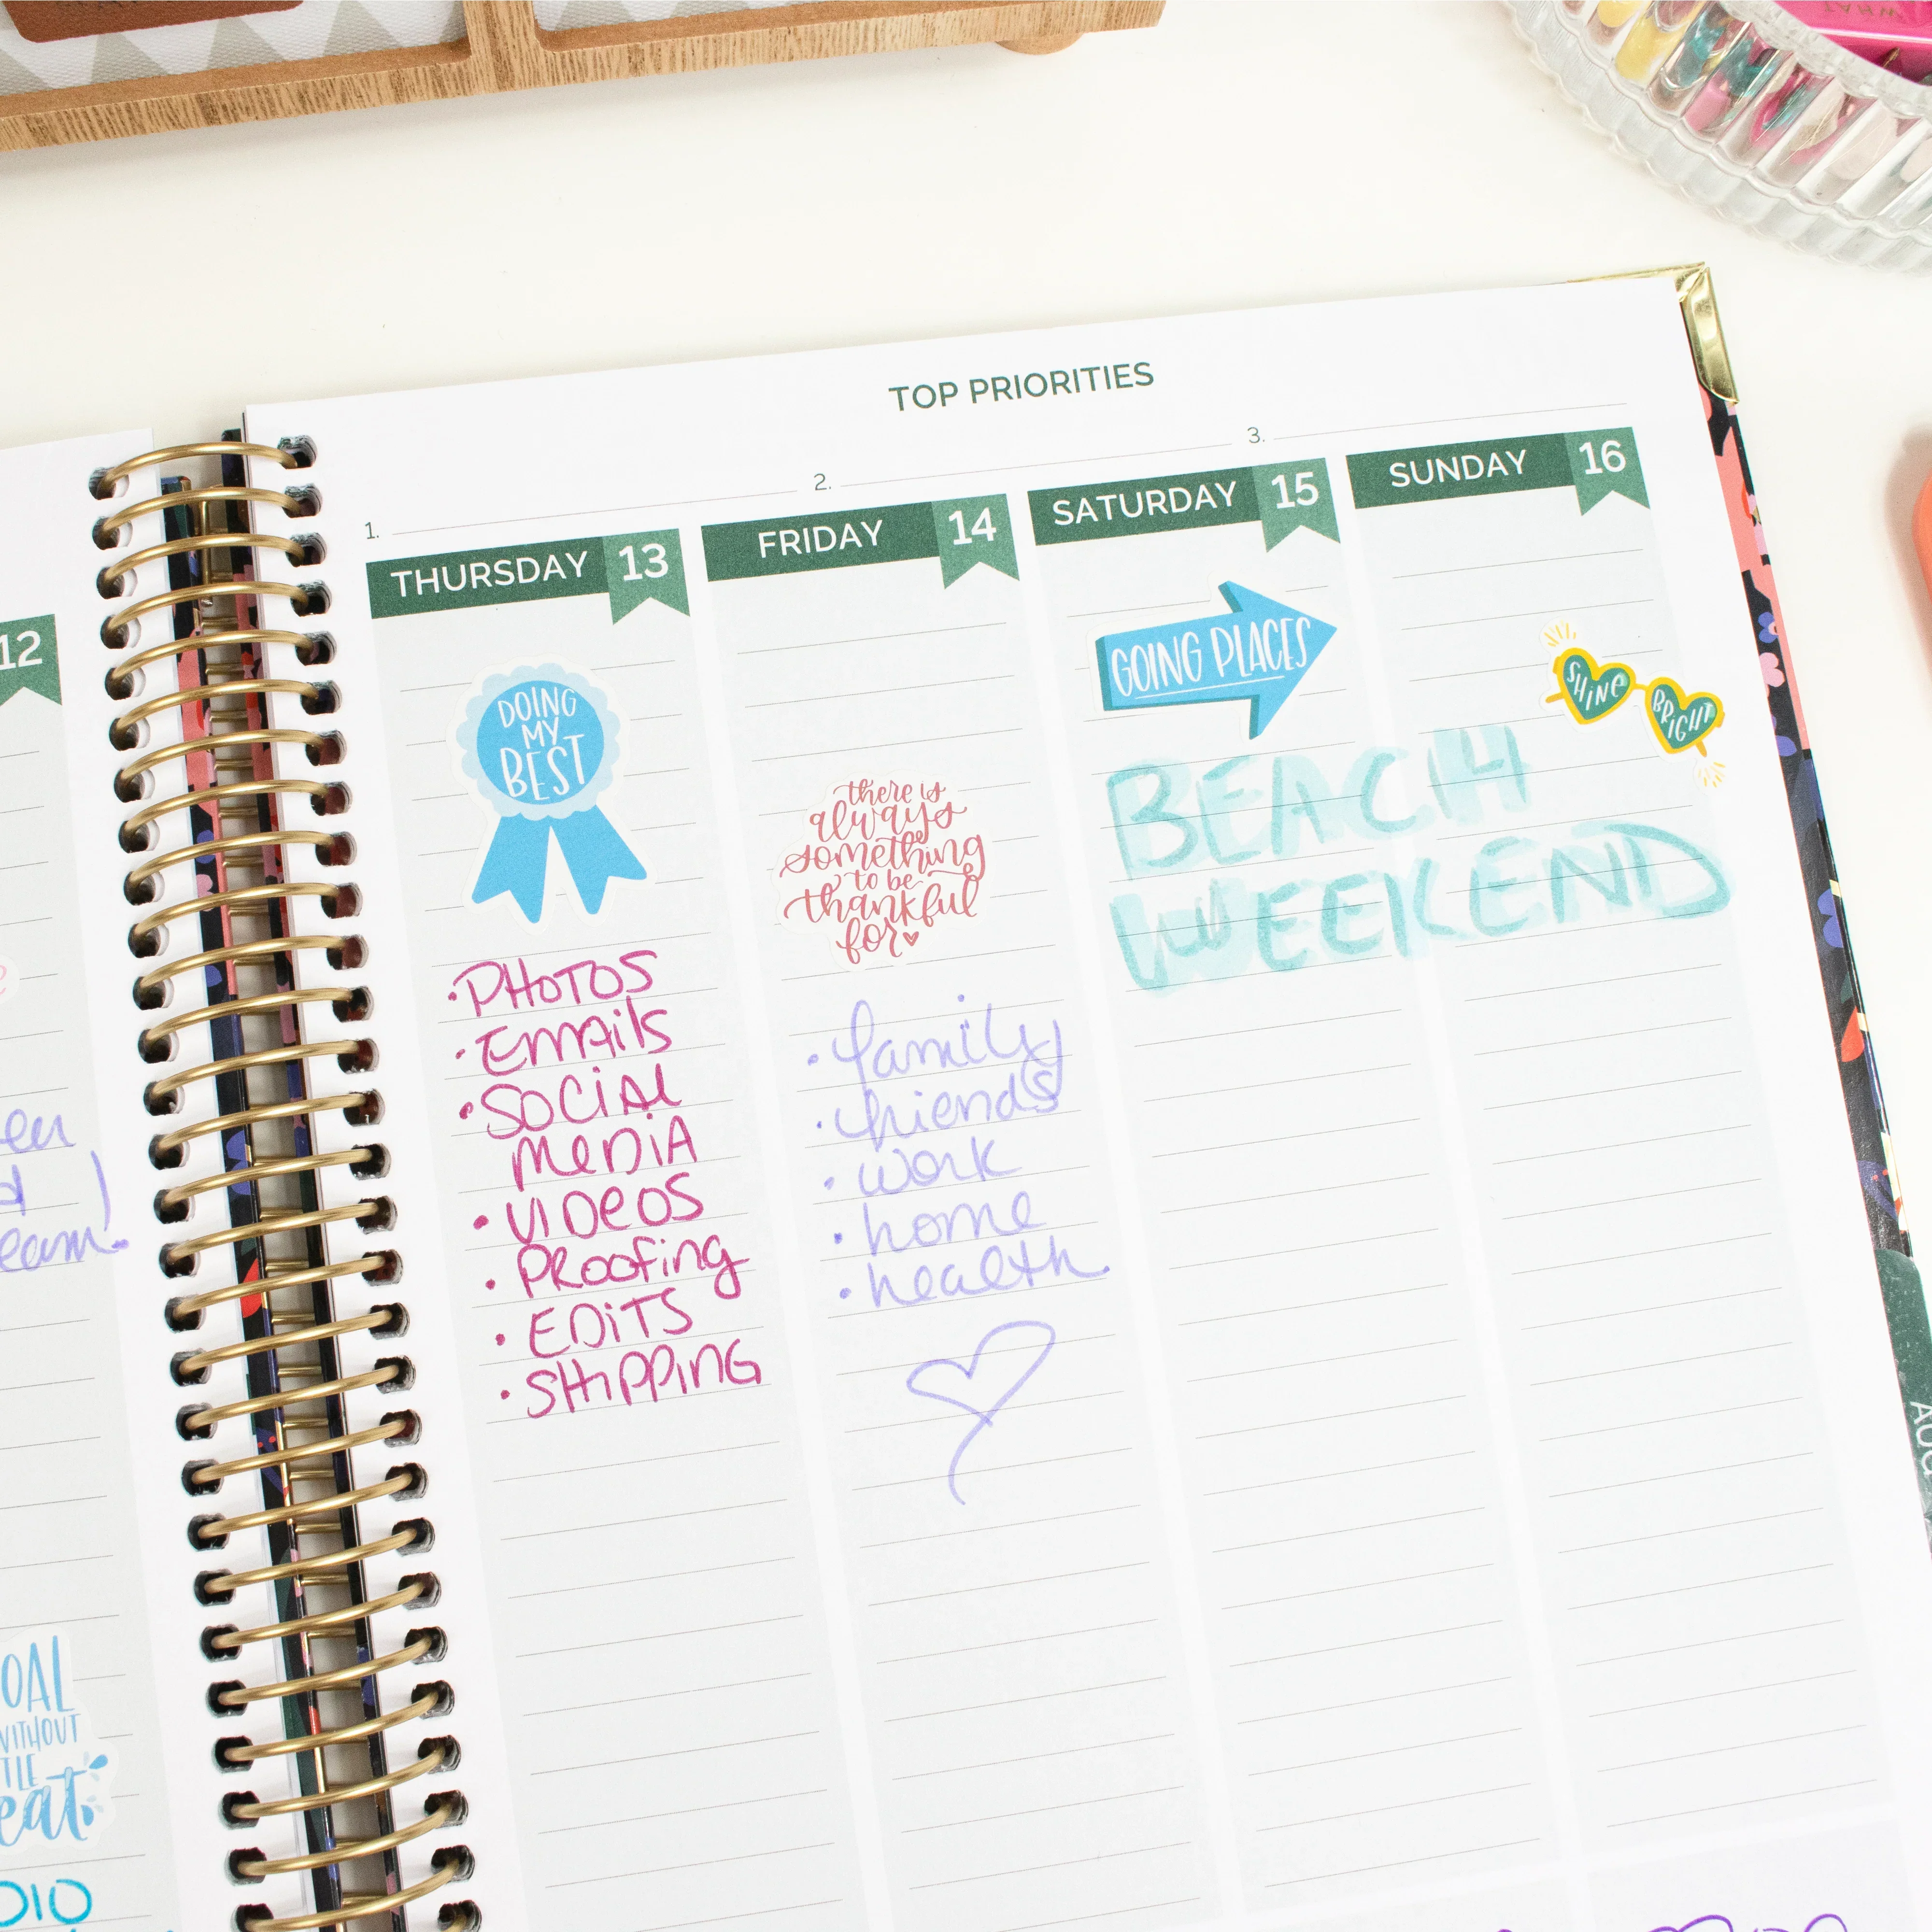 TOP PRIORITIES
1.
2.
3.
12
THURSDAY 13
DOING
MY
BEST
·PHOTOS
·EMAils
·SOCiAL
MEDiA
·ViDEOS
·PROOfing
·EDiTS
·SHiPPiNG
FRIDAY 14
there is
always
something
to be
thankful
for
·family
·friends
·work
·home
·health
SATURDAY 15
GOING PLACES
SUNDAY 16
SHINE
BRIGHT
BEACH
WEEKEND
WITHOUT
AUG